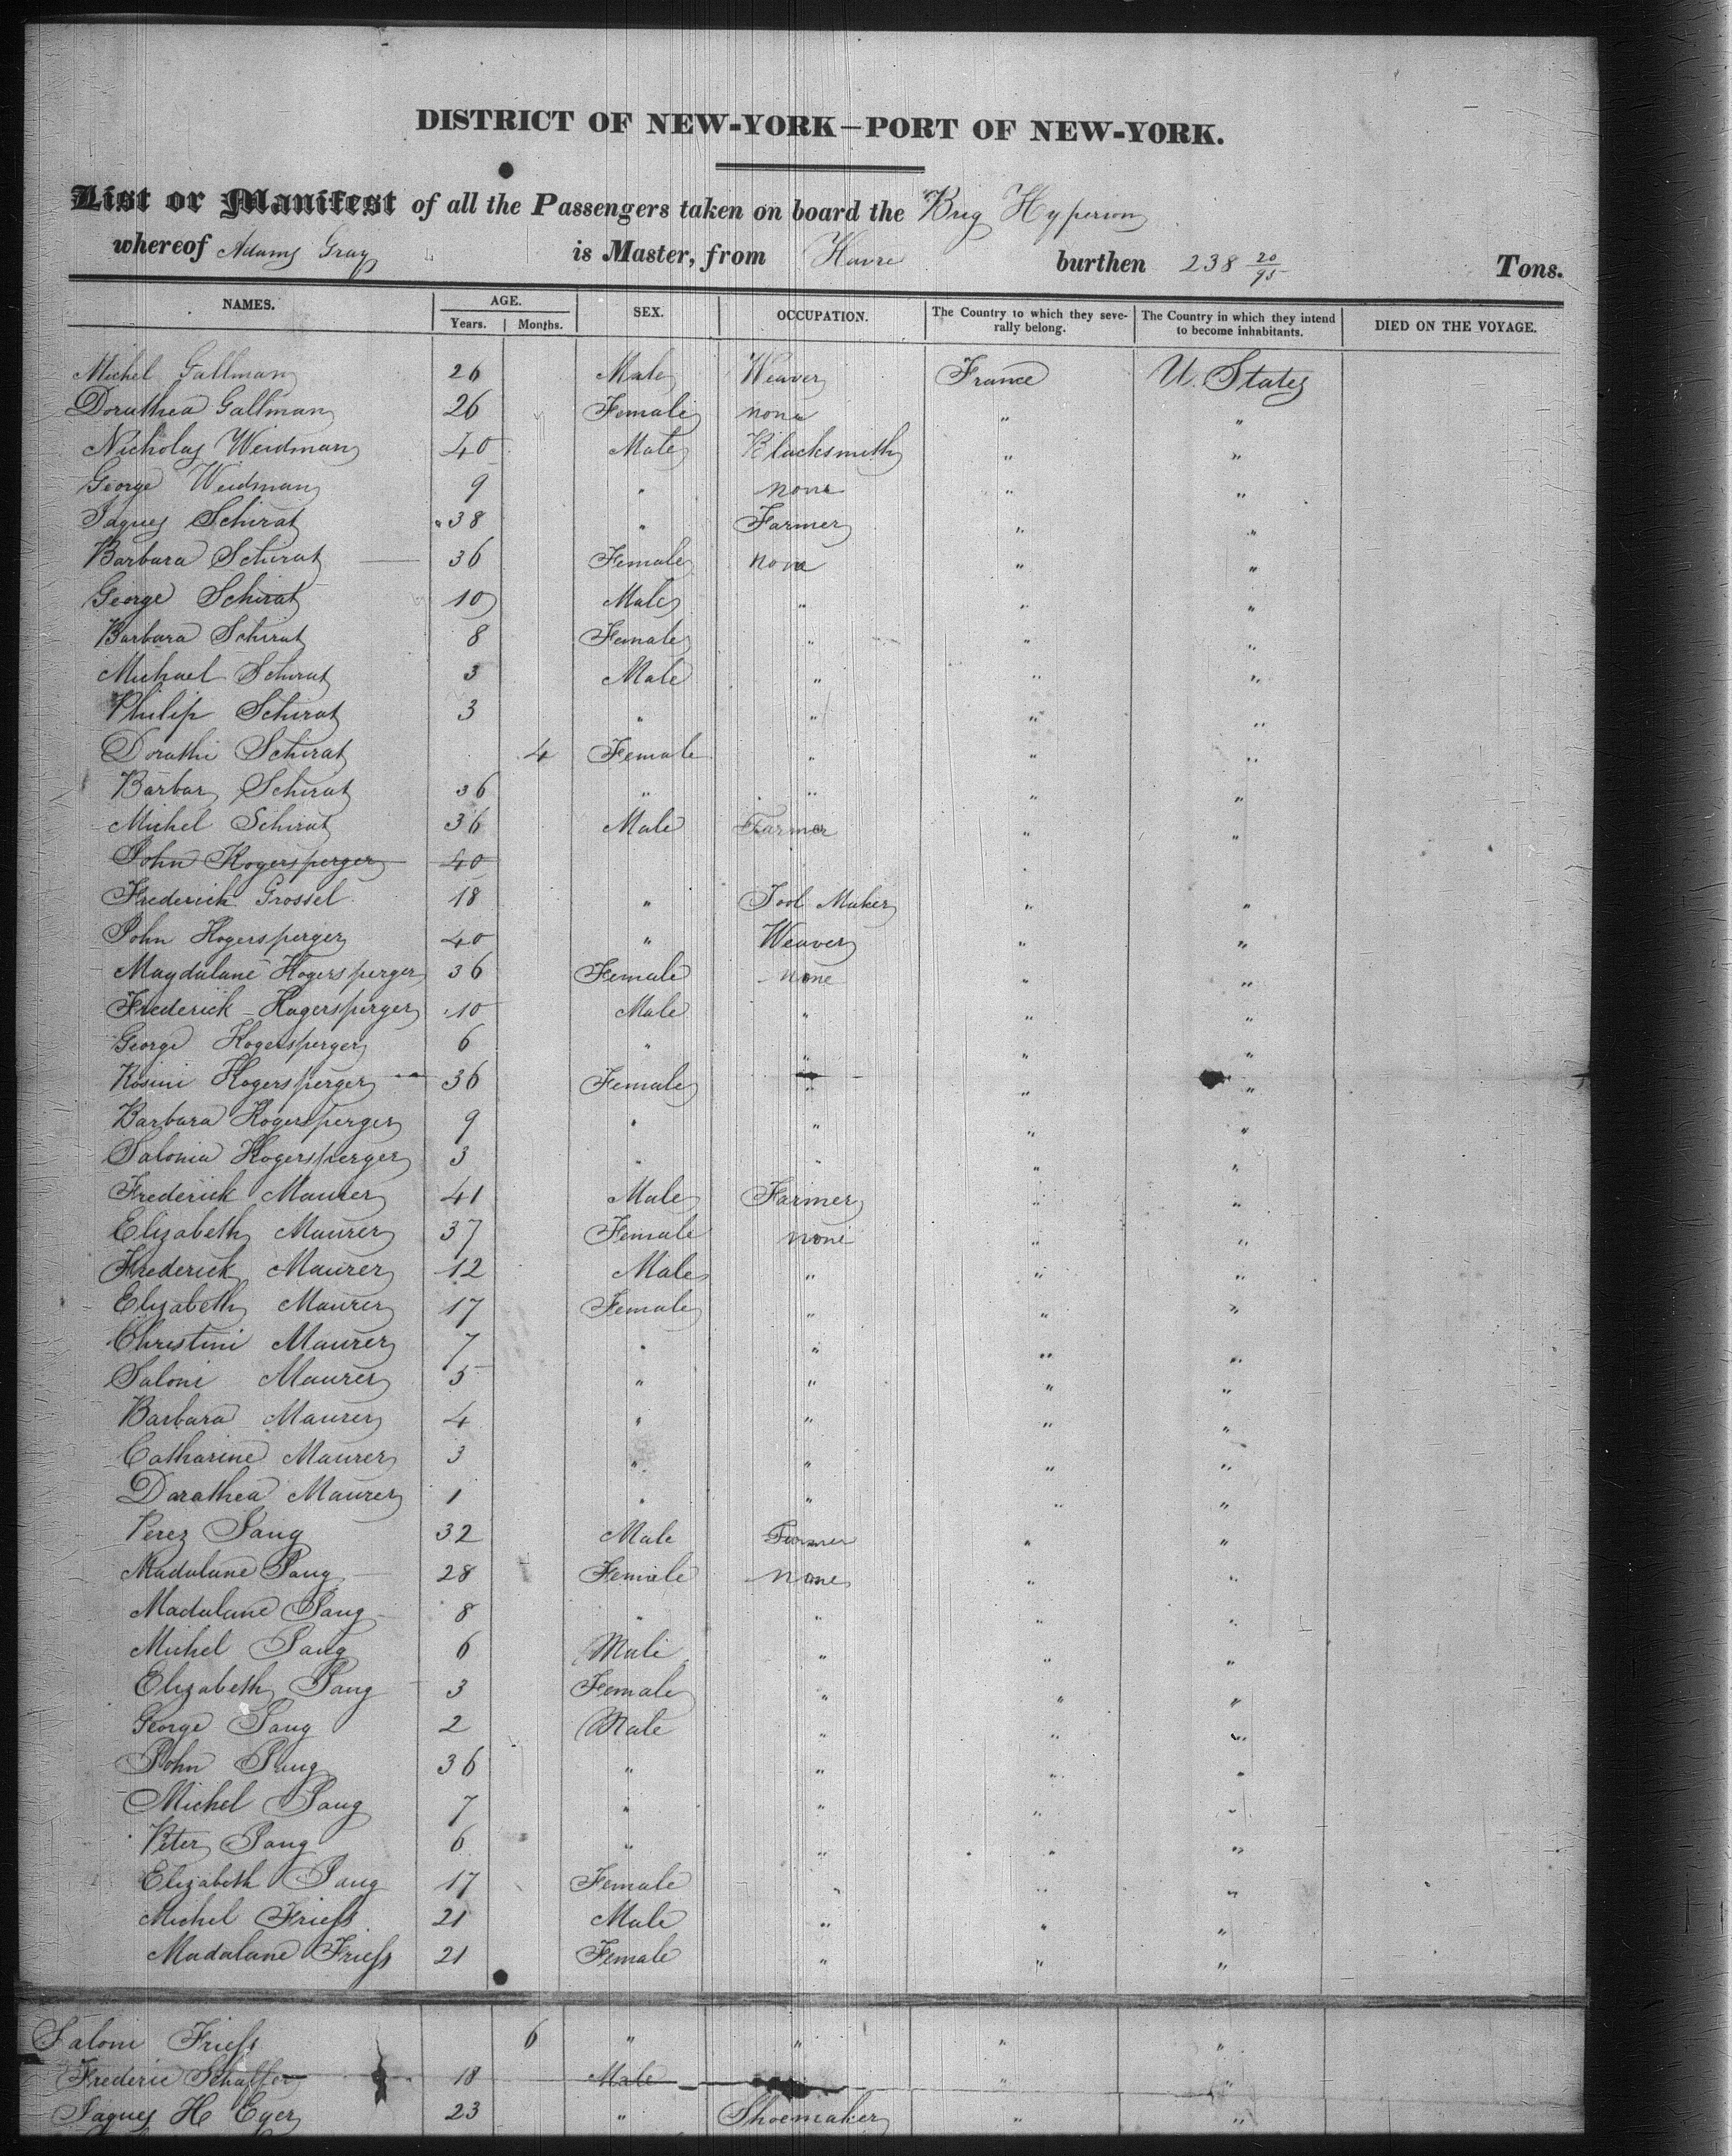 DISTRICT OF NEW-YORK—PORT OF NEW-YORK.
List or Manifest of all the Passengers taken on board the Brig Hyperion
whereof Adams Gray is Master, from Havre burthen 238 20/95 Tons.
NAMES. AGE. Years. Months. SEX. OCCUPATION. The Country to which they severally belong. The Country in which they intend to become inhabitants. DIED ON THE VOYAGE.
Michel Gallman 26 Male Weaver France U. States
Dorathea Gallman 26 Female none " "
Nicholas Weidman 40 Male Blacksmith " "
George Weidman 9 " none " "
Jaques Schirat 38 " Farmer " "
Barbara Schirat 36 Female none " "
George Schirat 10 Male " " "
Barbara Schirat 8 Female " " "
Michael Schirat 3 Male " " "
Philip Schirat 3 " " " "
Dorathi Schirat 4 Female " " "
Barbar Schirat 36 " " " "
Michel Schirat 36 Male Farmer " "
John Hogersperger 40
Frederick Grossel 18 " Tool Maker " "
John Hogersperger 40 " Weaver " "
Magdalane Hogersperger 36 Female none " "
Frederick Hogersperger 10 Male " " "
George Hogersperger 6 " " " "
Rosini Hogersperger 36 Female " " "
Barbara Hogersperger 9 " " " "
Salonia Hogersperger 3 " " " "
Frederick Maurer 41 Male Farmer " "
Elizabeth Maurer 37 Female none " "
Frederick Maurer 12 Male " " "
Elizabeth Maurer 17 Female " " "
Christini Maurer 7 " " " "
Saloni Maurer 5 " " " "
Barbara Maurer 4 " " " "
Catharine Maurer 3 " " " "
Darathea Maurer 1 " " " "
Perez Jang 32 Male Farmer " "
Madalane Jang 28 Female None " "
Madalane Jang 8 " " " "
Michel Jang 6 Male " " "
Elizabeth Jang 3 Female " " "
George Jang 2 Male " " "
John Jang 36 " " " "
Michel Jang 7 " " " "
Peter Jang 6 " " " "
Elizabeth Jang 17 Female " " "
Michel Friess 21 Male " " "
Madalane Friess 21 Female " " "
Saloni Friess 6 " " " "
Frederic Schaffer 18 Male " "
Jaques H Eyer 23 " Shoemaker " "